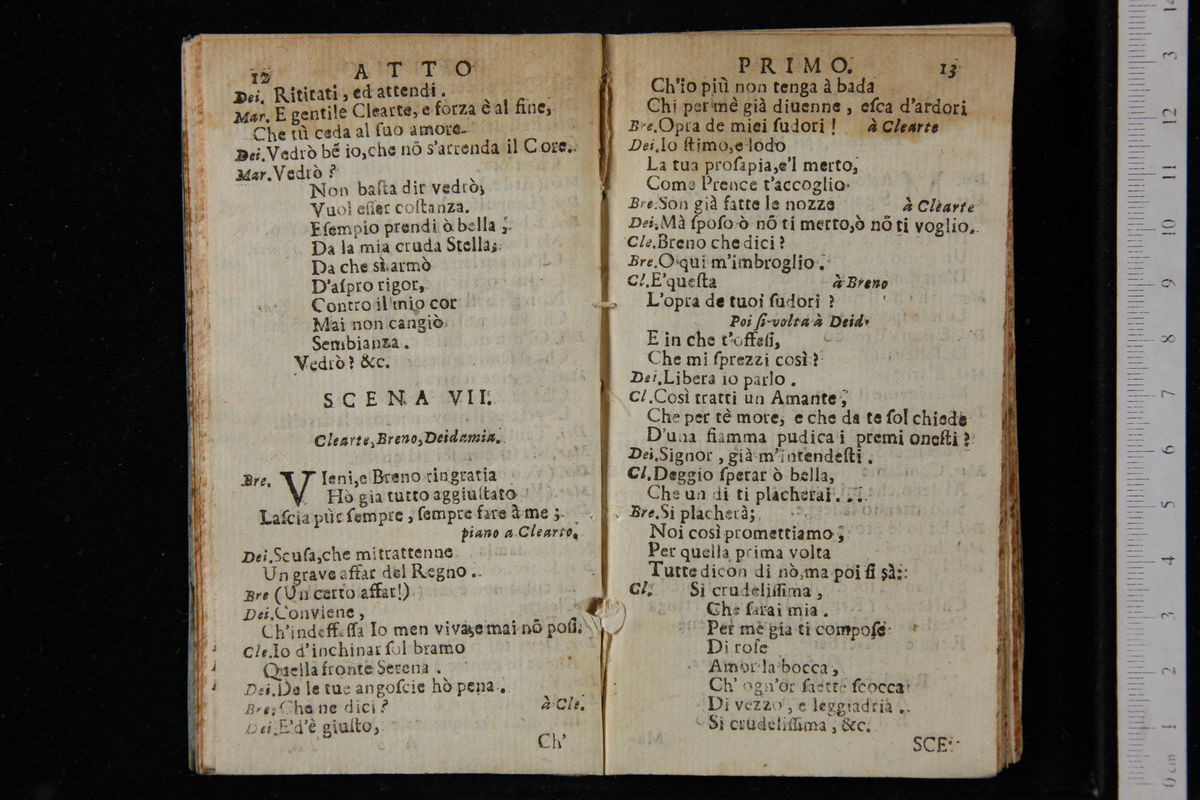 12 ATTO
Dei. Ritirati, ed attendi.
Mar. E gentile Clearte, e forza è al fine,
Che tù ceda al ſuo amore.
Dei. Vedrò bẽ io, che nõ s'arrenda il Core.
Mar. Vedrò?
Non baſta dir vedrò;
Vuol eſſer coſtanza.
Eſempio prendi ò bella;
Da la mia cruda Stella;
Da che sì armò
D'aſpro rigor,
Contro il mio cor
Mai non cangiò
Sembianza.
Vedrò? &c.
SCENA VII.
Clearte, Breno, Deidamia.
Bre. VIeni, e Breno ringratia
Hò gia tutto aggiuſtato
Laſcia pùr ſempre, ſempre fare à me;
piano a Clearto.
Dei. Scuſa, che mi trattenne
Un grave affar del Regno.
Bre (Un certo affar!)
Dei. Conviene,
Ch'indeffeſſa Io men viva, e mai nõ poſi.
Cle. Io d'inchinar ſol bramo
Quella fronte Serena.
Dei. De le tue angoſcie hò pena.
Bre. Che ne dici? à Cle.
Dei. E'd'è giuſto,
Ch'
PRIMO. 13
Ch'io più non tenga à bada
Chi per mè già diuenne, eſca d'ardori
Bre. Opra de miei ſudori! à Clearte
Dei. Io ſtimo, e lodo
La tua proſapia, e'l merto,
Come Prence t'accoglio
Bre. Son già fatte le nozze à Clearte
Dei. Mà ſpoſo ò nõ ti merto, ò nõ ti voglio.
Cle. Breno che dici?
Bre. O qui m'imbroglio.
Cl. E'queſta à Breno
L'opra de tuoi ſudori?
Poi ſi volta à Deid.
E in che t'offeſi,
Che mi ſprezzi così?
Dei. Libera io parlo.
Cl. Così tratti un Amante,
Che per tè more, e che da te ſol chiede
D'una fiamma pudica i premi oneſti?
Dei. Signor, già m'intendeſti.
Cl. Deggio ſperar ò bella,
Che un di ti placherai...
Bre. Si placherà;
Noi così promettiamo;
Per quella prima volta
Tutte dicon di nò, ma poi ſi sà:
Cl. Si crudeliſſima,
Che ſarai mia.
Per mè gia ti compoſe
Di roſe
Amor la bocca,
Ch' ogn'or ſaette ſcocca
Di vezzo, e leggiadria.
Si crudeliſſima, &c.
SCE:
0 cm 1 2 3 4 5 6 7 8 9 10 11 12 3 14